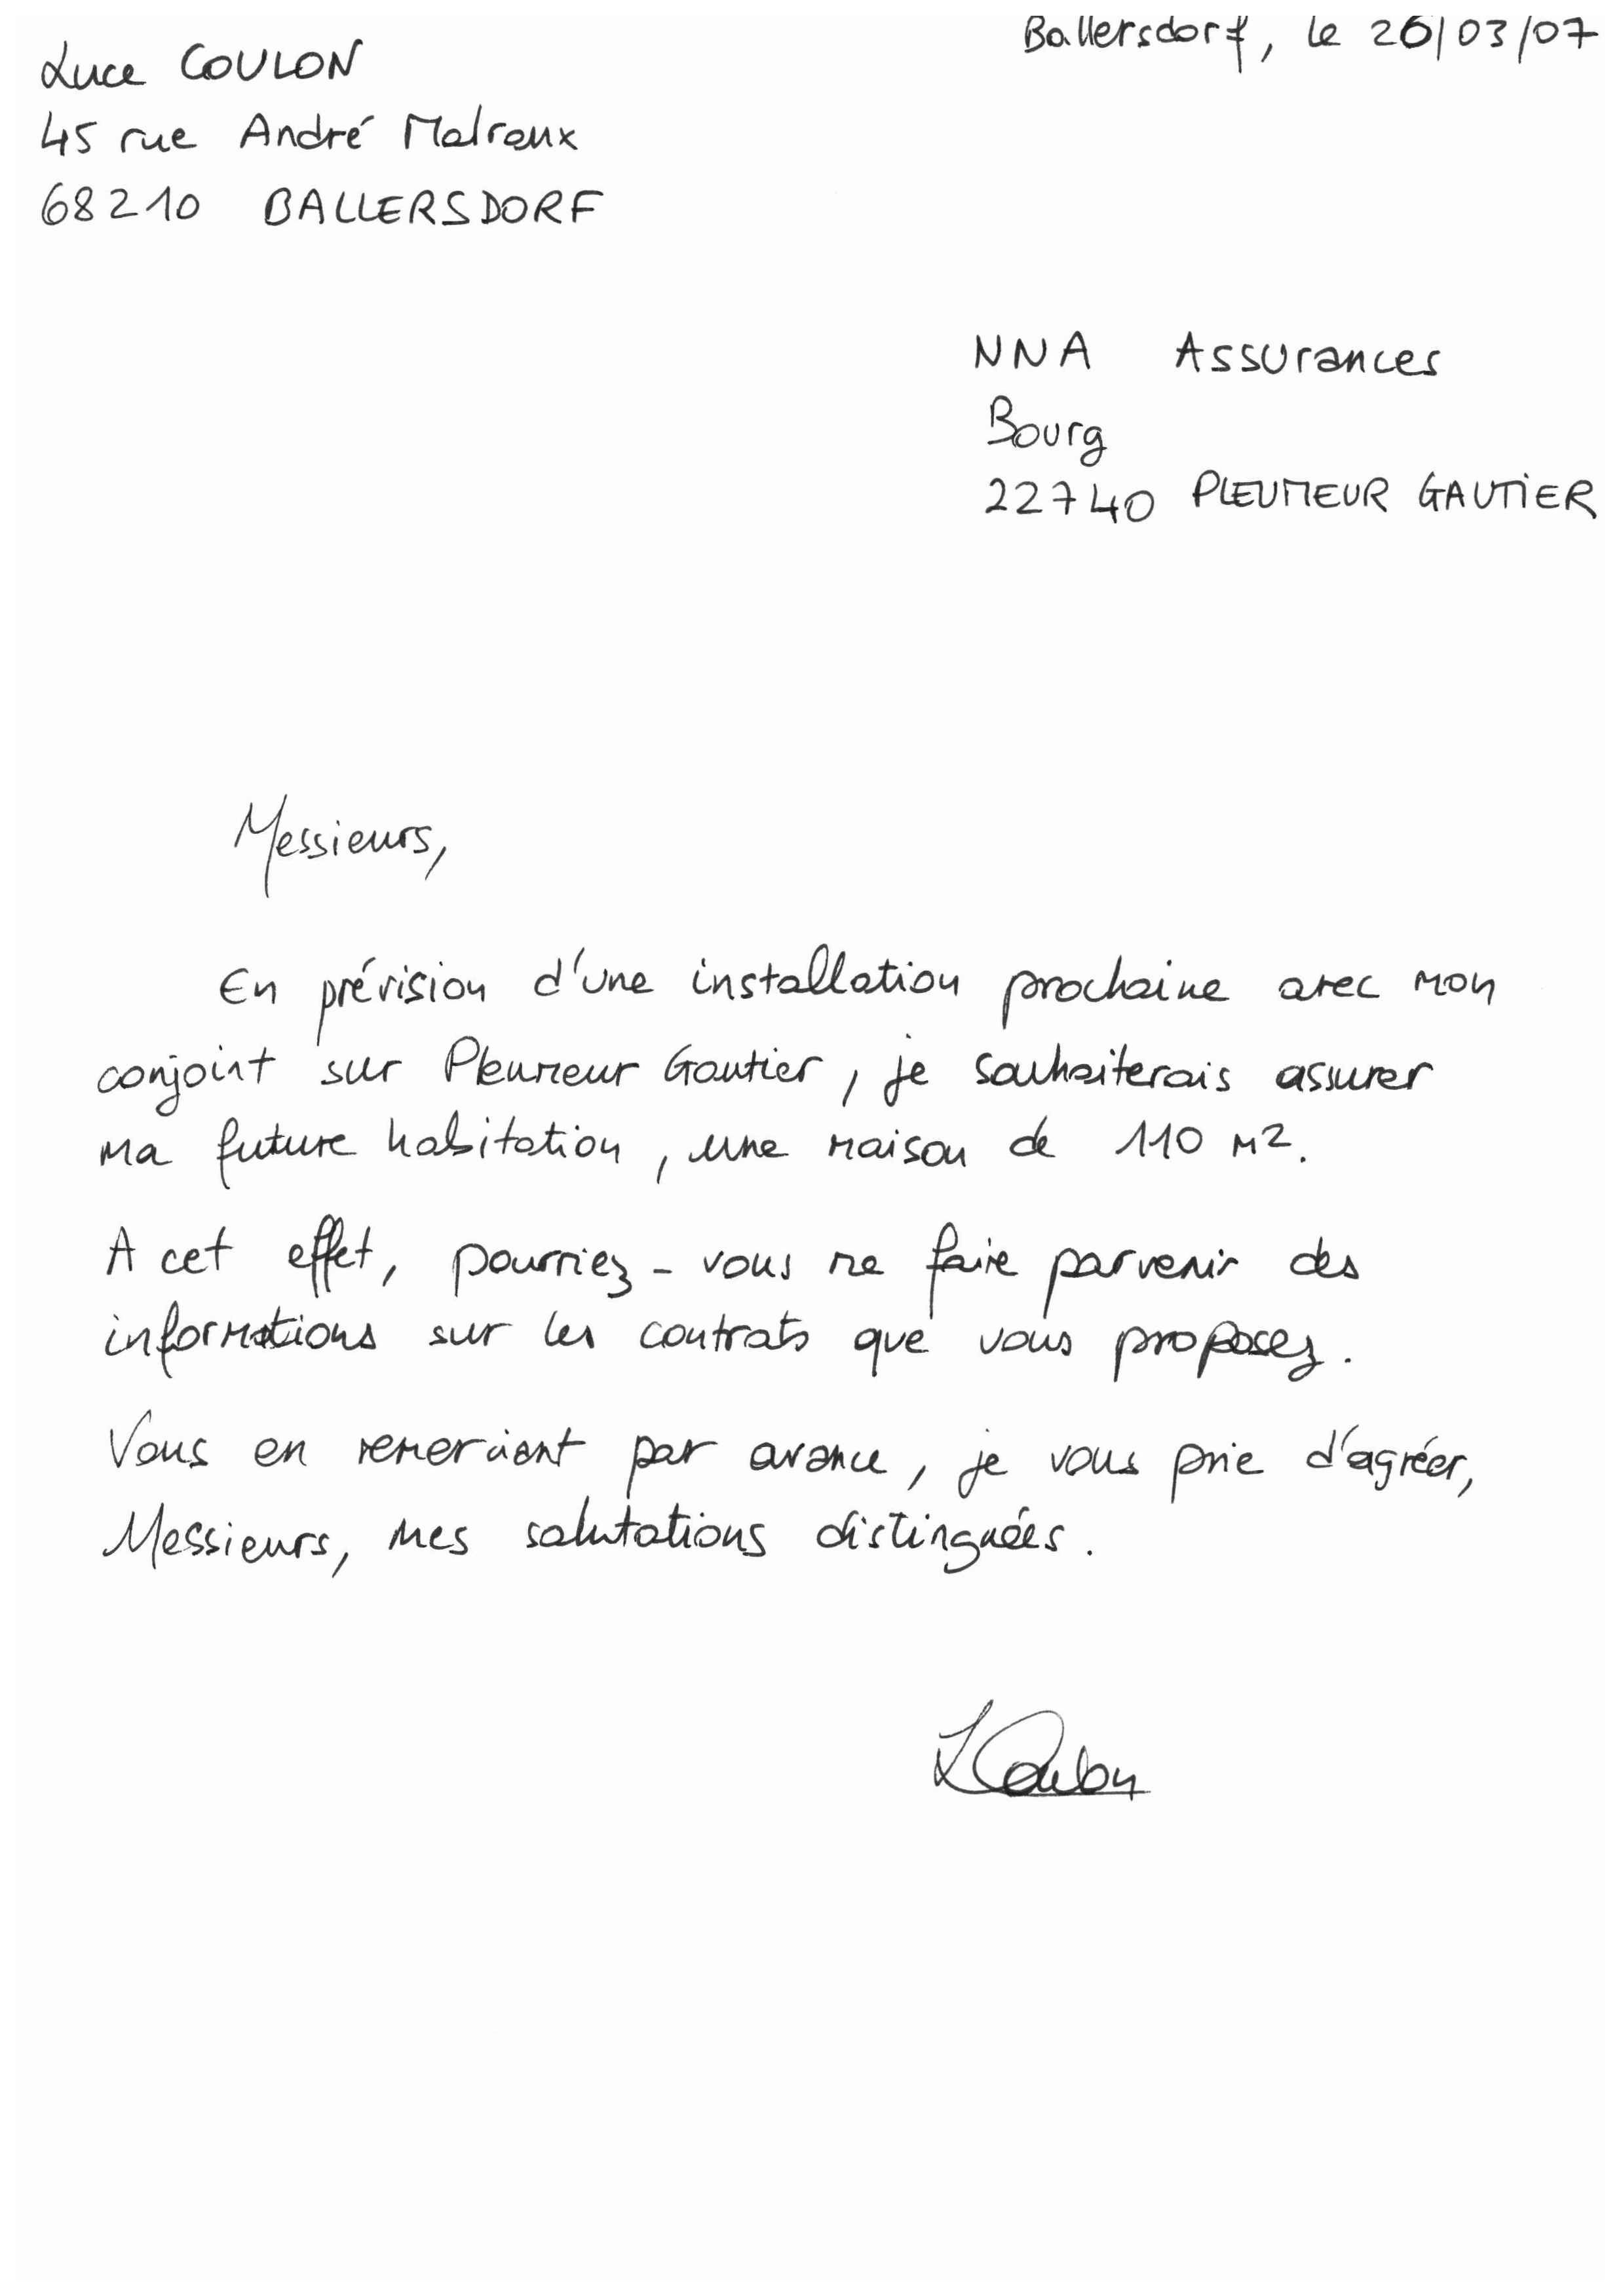 Luce COULON
Ballersdorf, le 26/03/07
45 rue André Malraux
68210 BALLERSDORF
NNA Assurances
Bourg
22740 PLEUMEUR GAUTIER
Messieurs,
En prévision d'une installation prochaine avec mon
conjoint sur Pleumeur Gautier, je souhaiterais assurer
ma future habitation, une maison de 110 m2.
A cet effet, pourriez-vous me faire parvenir des
informations sur les contrats que vous proposez.
Vous en remerciant par avance, je vous prie d'agréer,
Messieurs, mes salutations distinguées.
LCoulon